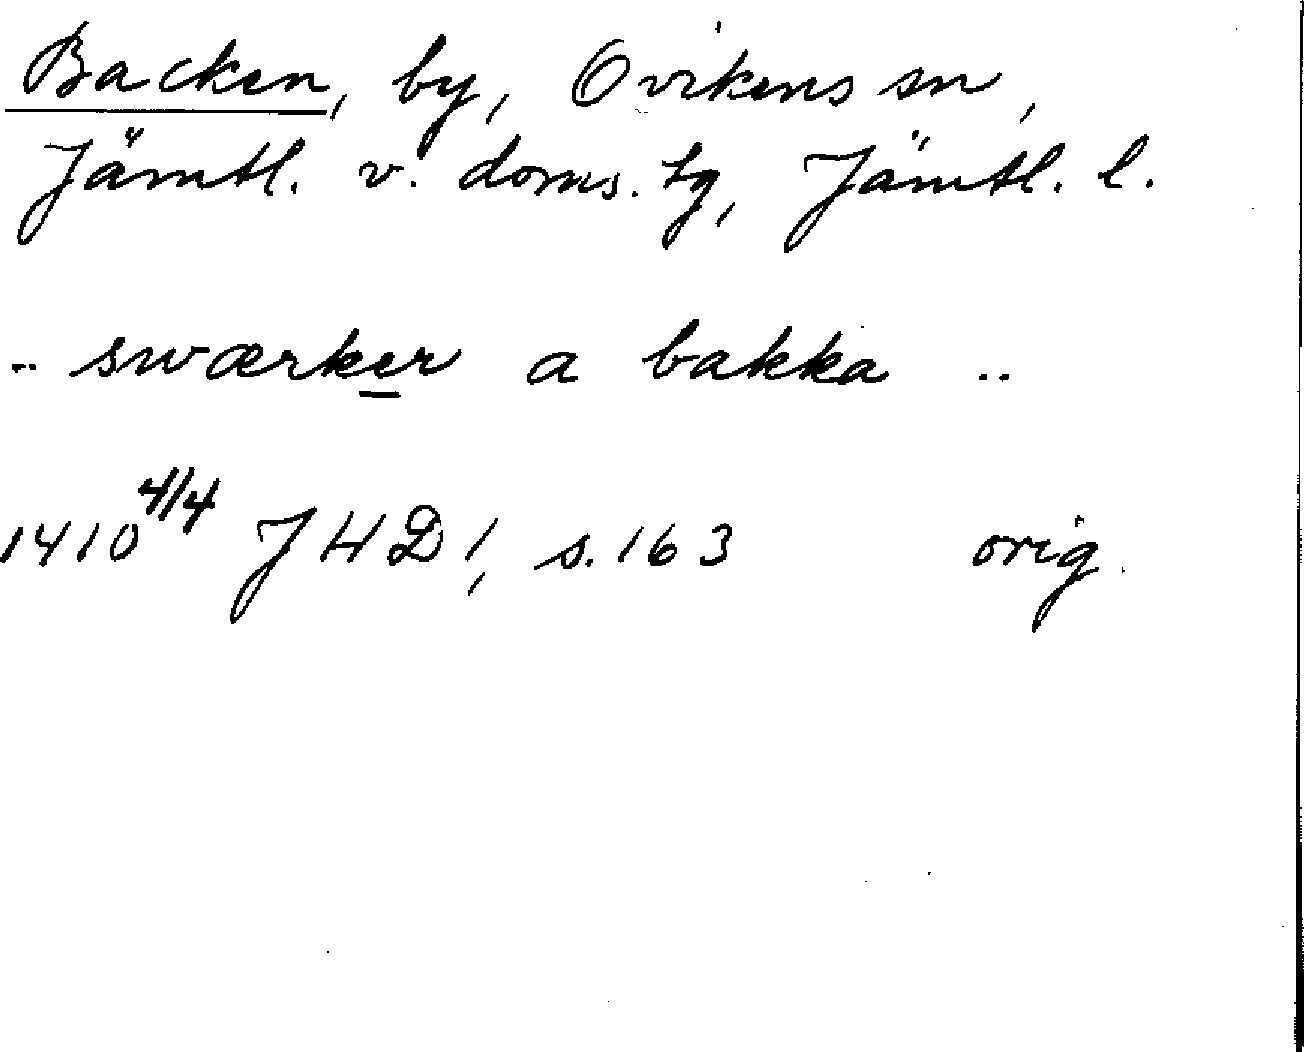 Backen, by, Ovikens sn,
Jämtl. v. doms. tg, Jämtl. l.
.. swærker a bakka ..
1410 4/4 JHD 1, s. 163 orig.